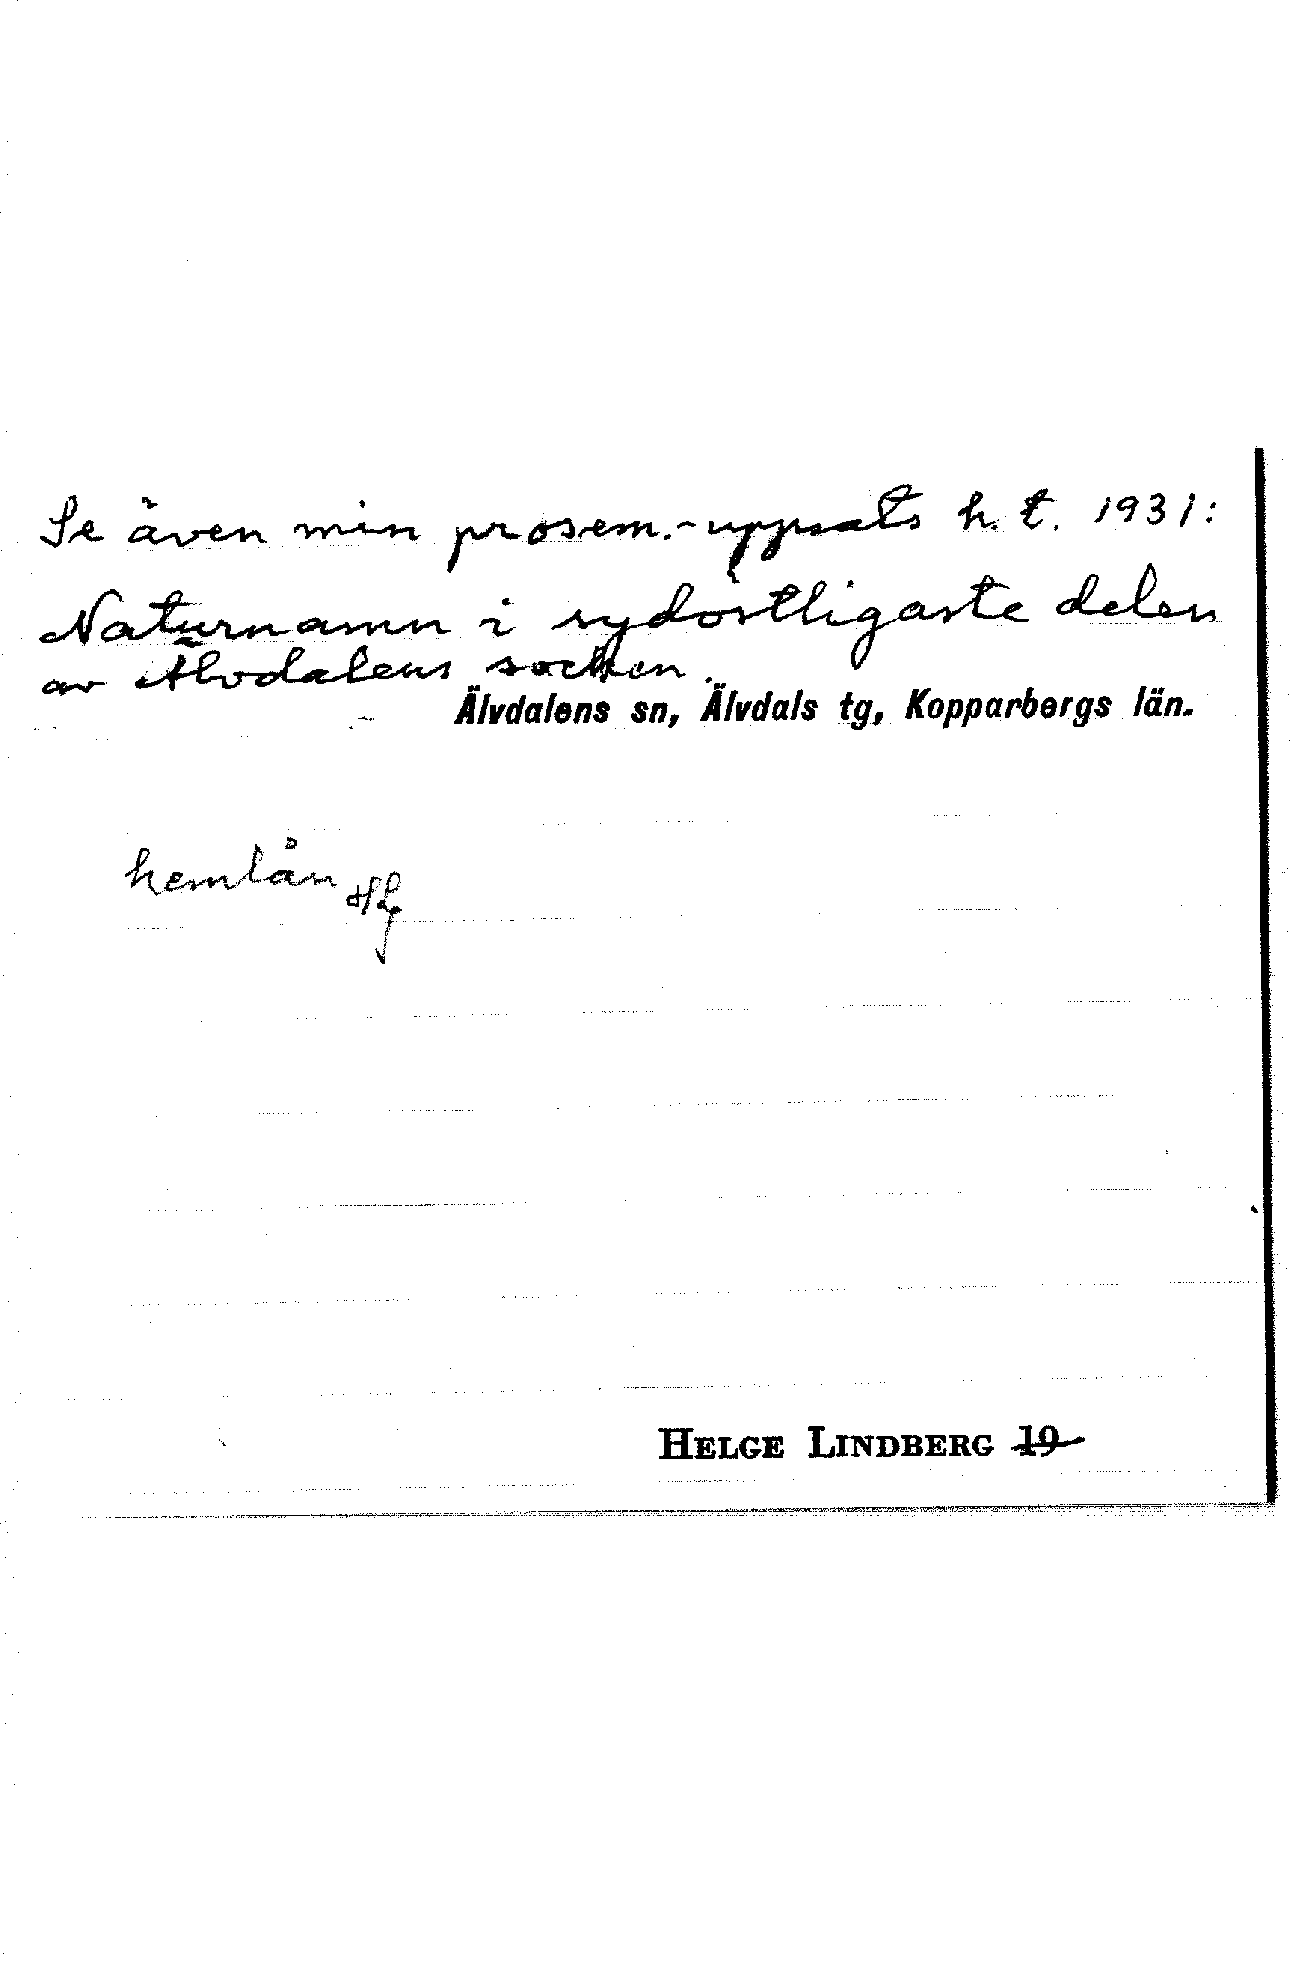 Se även min prosem.-uppsats h. t. 1931:
Naturnamn i sydöstligaste delen
av Älvdalens socken.
Älvdalens sn, Älvdals tg, Kopparbergs län.
hemlån
HELGE LINDBERG 19